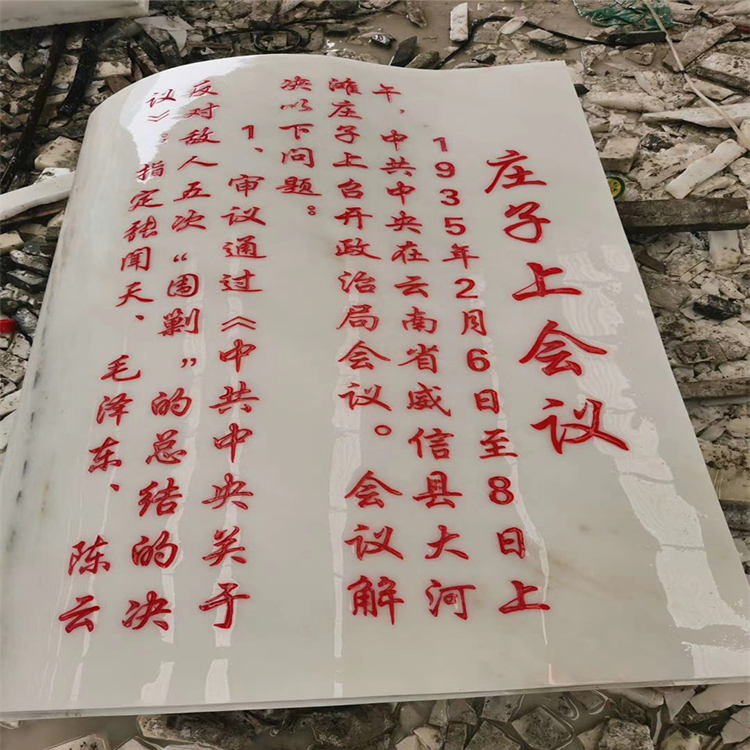 庄子上会议
1935年2月6日至8日上
午，中共中央在云南省威信县大河
滩庄子上召开政治局会议。会议解
决以下问题：
1、审议通过《中共中央关于
反对敌人五次“围剿”的总结的决
议》；指定张闻天、毛泽东、陈云